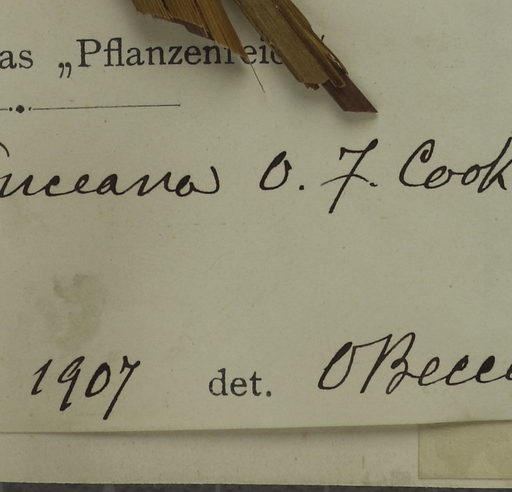 as „Pflanzenreich“
O. F. Cook
1907 det. O Becc